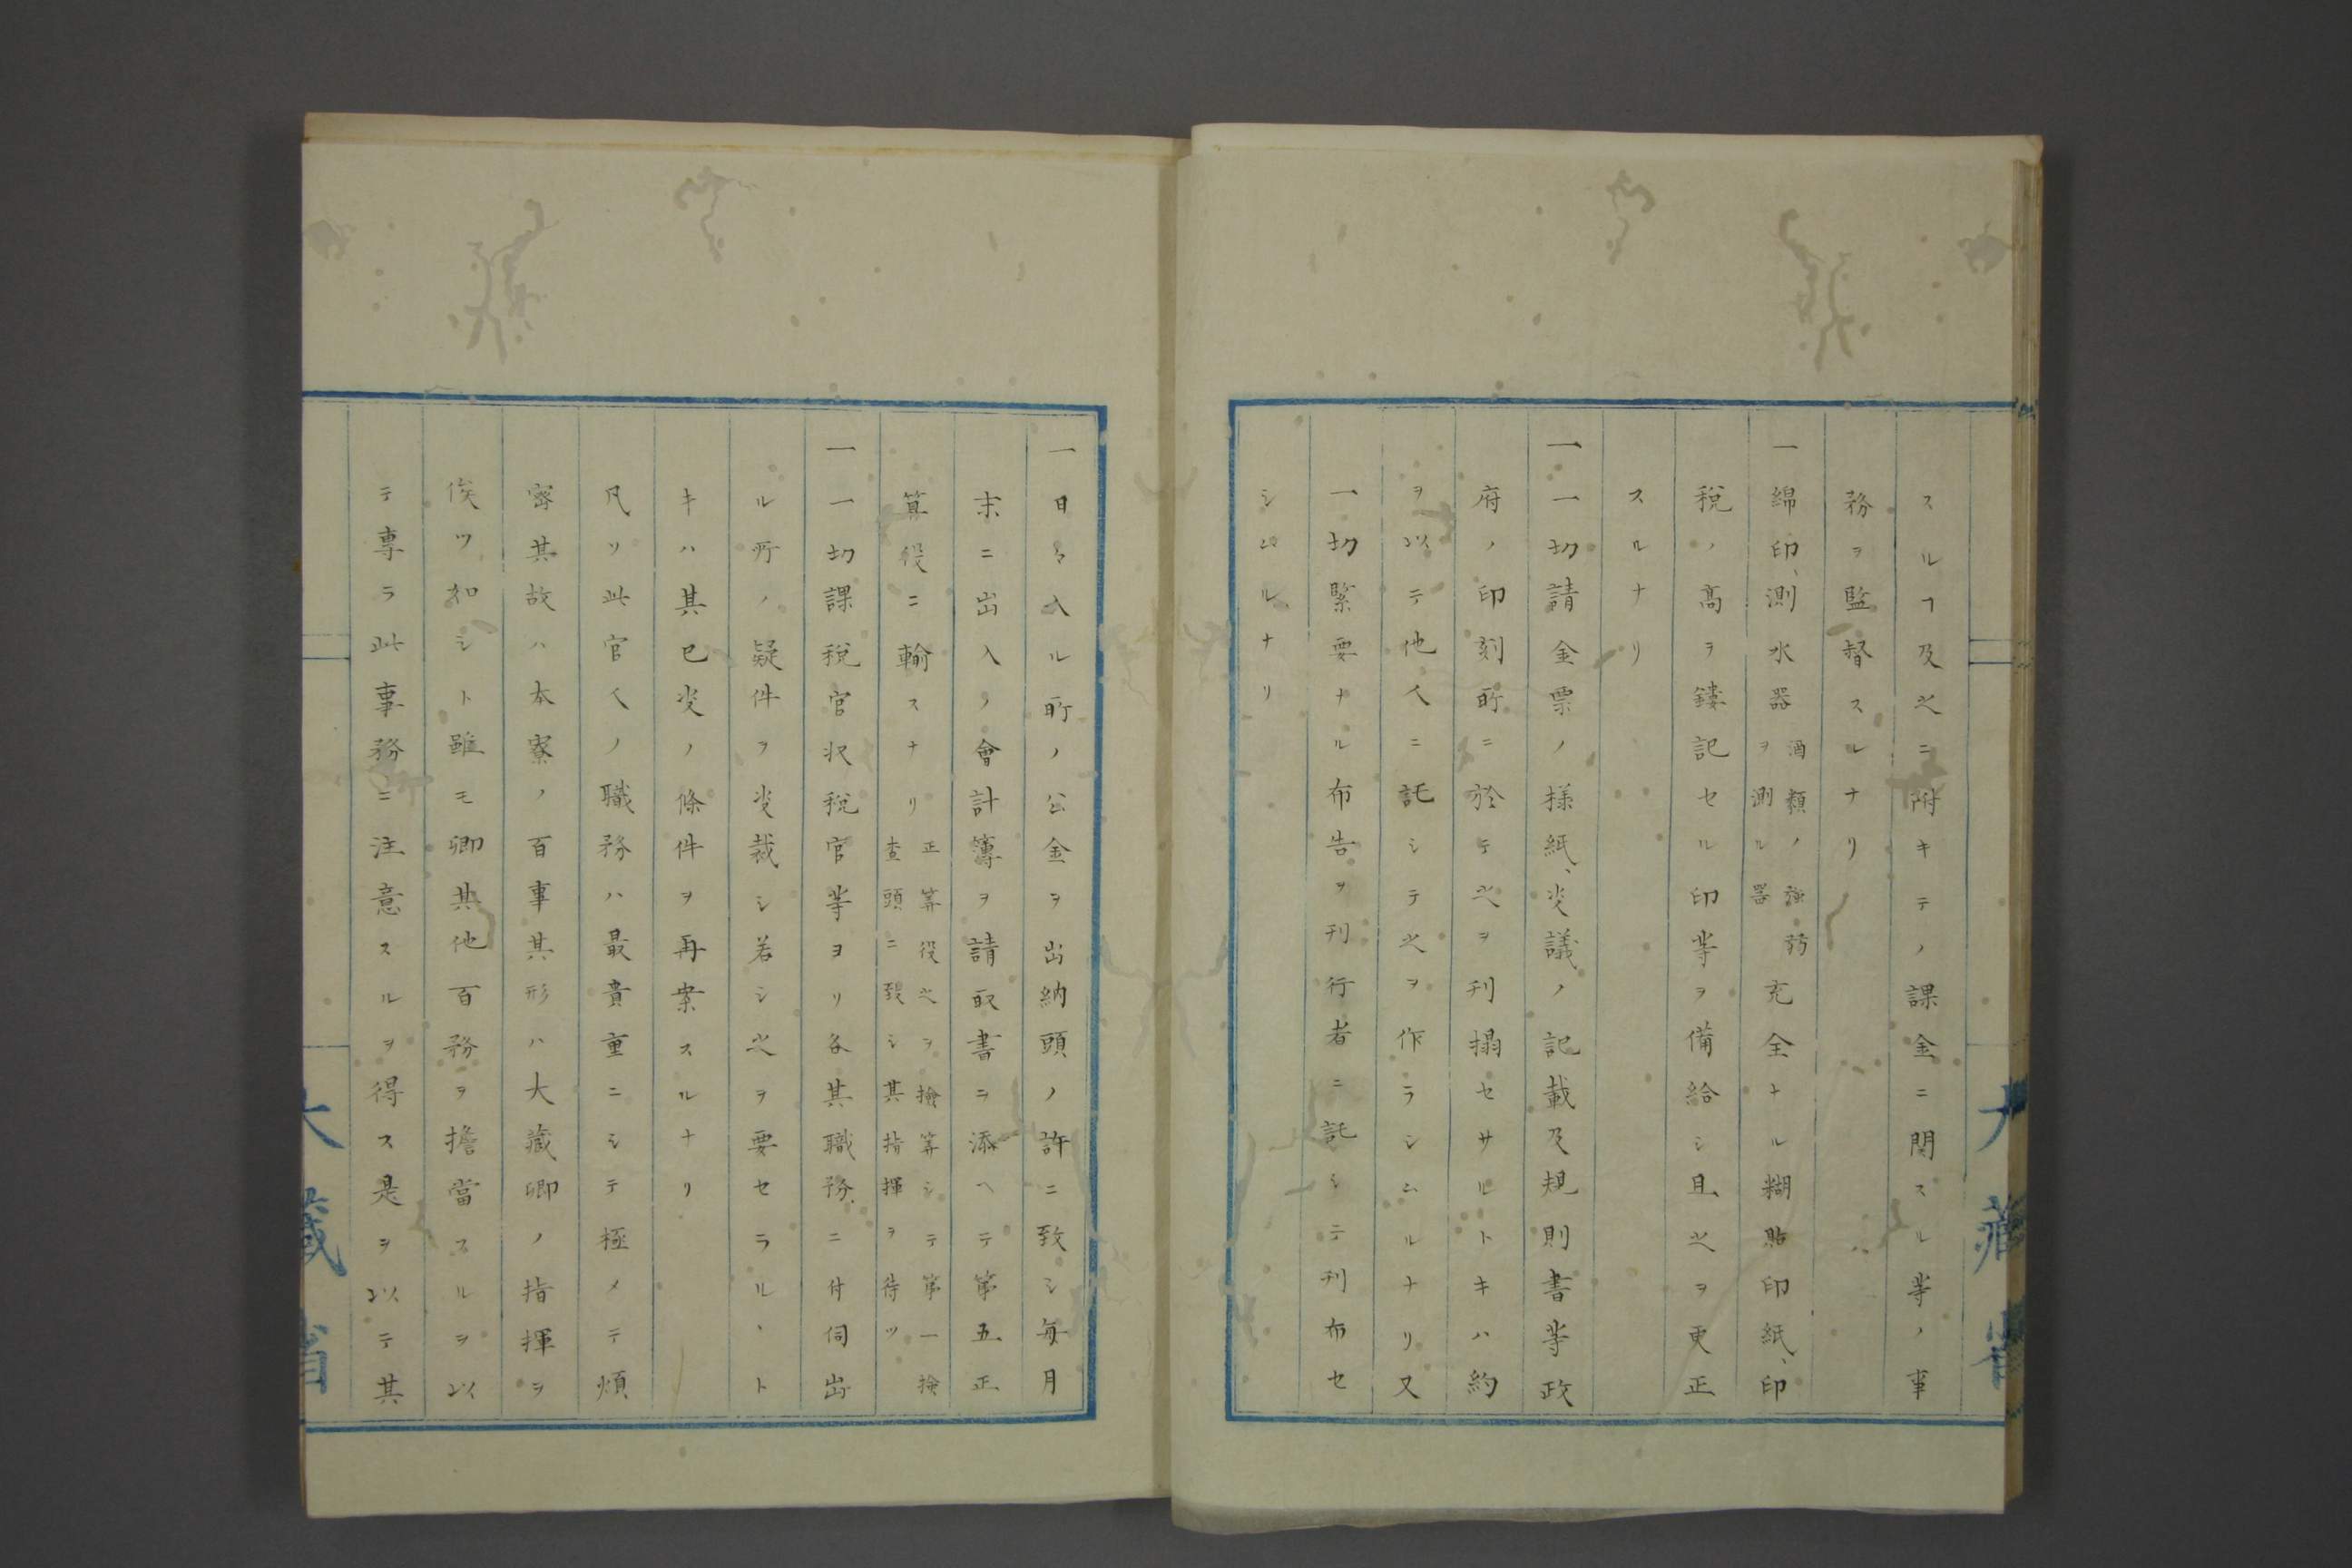 スルヿ及之ニ附キテノ課金ニ関スル等ノ事
務ヲ監督スルナリ
一綿印、測水器酒類ノ強弱ヲ測ル器充全ナル糊貼印紙、印
税ノ高ヲ鏤記セル印等ヲ備給シ且之ヲ更正
スルナリ
一一切請金票ノ様紙、决議ノ記載及規則書等政
府ノ印刻所ニ於テ之ヲ刊搨セサルトキハ約
ヲ以テ他人ニ託シテ之ヲ作ラシムルナリ又
一切緊要ナル布告ヲ刊行者ニ託シテ刊布セ
シムルナリ
大藏省
一日々入ル所ノ公金ヲ出納頭ノ許ニ致シ毎月
末ニ出入ノ會計簿ヲ請取書ニ添ヘテ第五正
算役ニ輸スナリ正算役之ヲ撿算シテ第一撿査頭ニ致シ其指揮ヲ待ツ
一一切課税官収税官等ヨリ各其職務ニ付伺出
ル所ノ疑件ヲ决裁シ若シ之ヲ要セラルヽト
キハ其已决ノ條件ヲ再案スルナリ
凡ソ此官人ノ職務ハ最貴重ニシテ極メテ煩
密其故ハ本寮ノ百事其形ハ大藏卿ノ指揮ヲ
俟ツ如シト雖モ卿其他百務ヲ擔當スルヲ以
テ専ラ此事務ニ注意スルヲ得ス是ヲ以テ其
大藏省